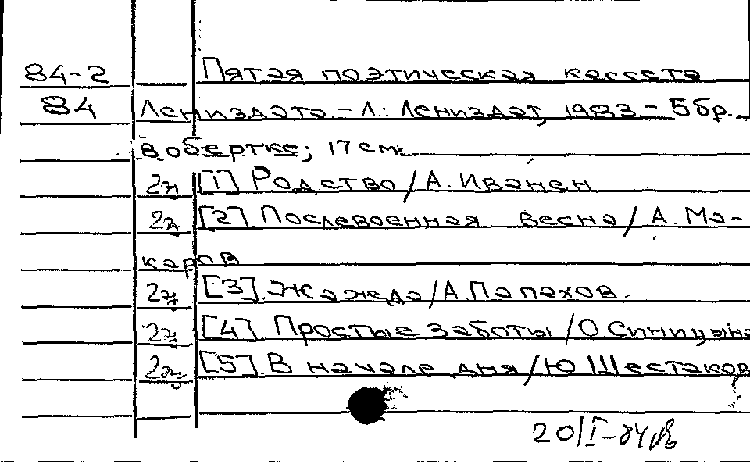 84-2 Пятая поэтическая кассета
84 Лениздата. - Л.: Лениздат, 1983 - 5бр.
в обертке; 17 см.
2л [1] Родство / А. Иванен
2л [2] Послевоенная весна / А. Ма-
каров
2л [3] Жажда / А. Папахов.
2л [4] Простые заботы / О Синицына
2л [5] В начале дня / Ю Шестаков
20/I-84